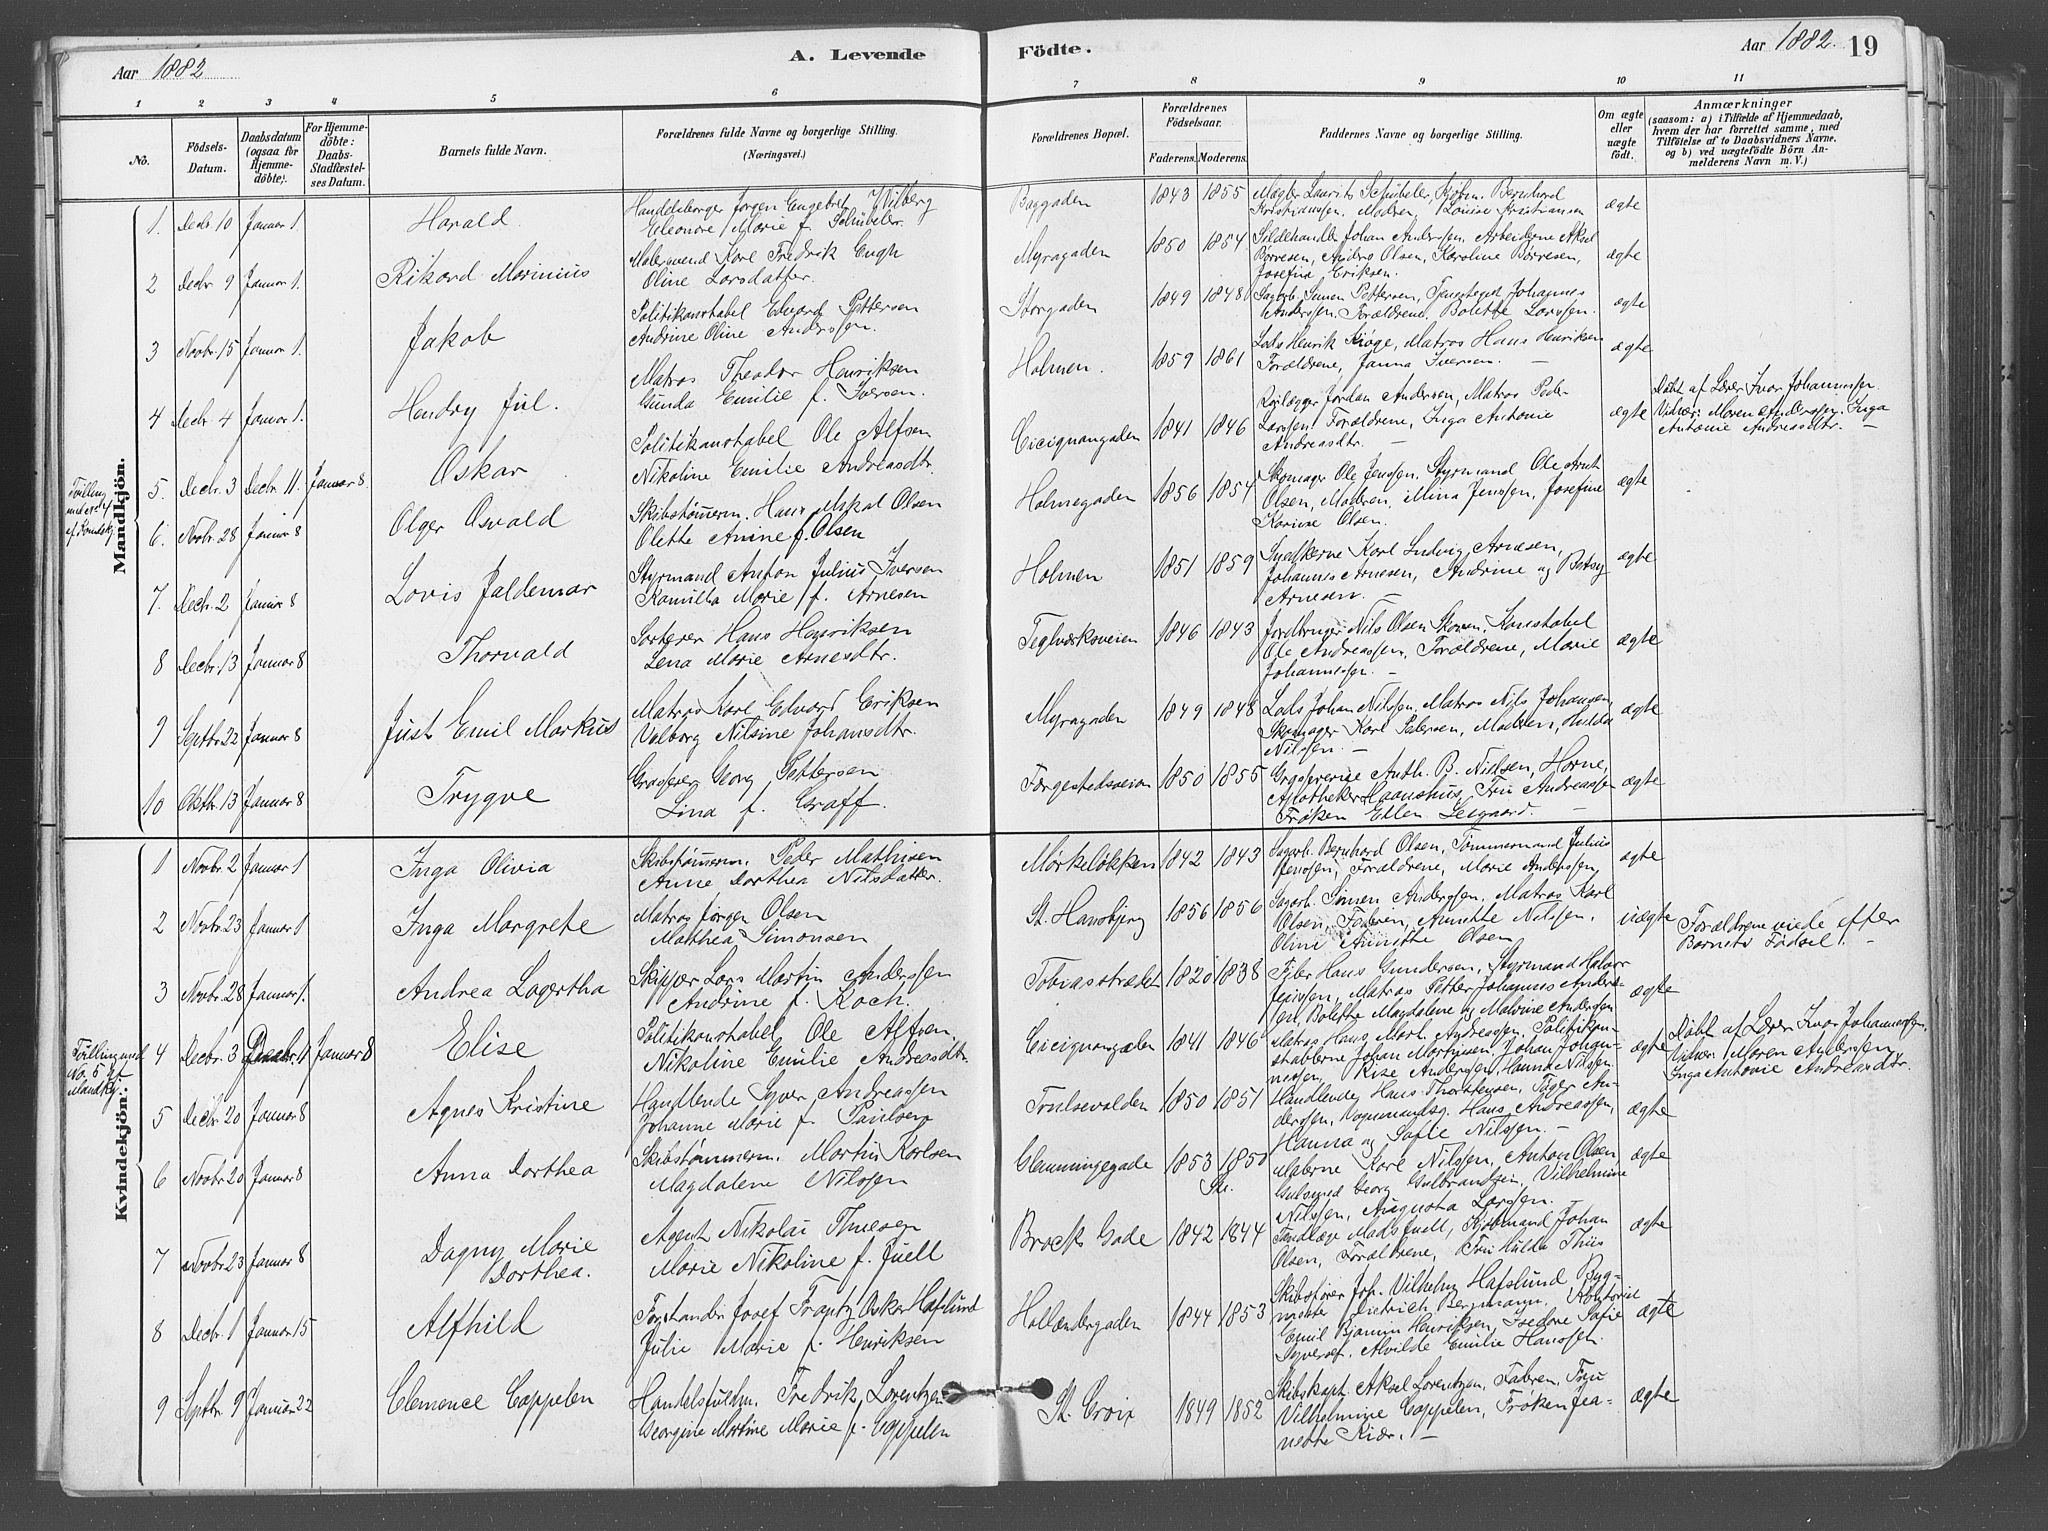 Aar 1882
A. Levende Födte.
Aar 1882. 19
1 2 3 4 5 6 7 8 9 10 11
No.
Födsels-Datum.
Daabsdatum (ogsaa for Hjemme-döbte).
For Hjemme-döbte: Daabs-Stadfæstel-ses Datum.
Barnets fulde Navn.
Forældrenes fulde Navne og borgerlige Stilling.
(Næringsvei.)
Forældrenes Bopæl.
Forældrenes Födselsaar.
Faderens. Moderens.
Faddernes Navne og borgerlige Stilling.
Om ægte eller uægte födt.
Anmærkninger
(saasom: a) i Tilfælde af Hjemmedaab,
hvem der har forrettet samme, med
Tilföielse af to Daabsvidners Navne,
og b) ved uægtefödte Börn An-
melderens Navn m. V.)
Mandkjön.
1. Decbr. 10 Januar 1. Harald
Handelsborger Jørgen Engebret Wilberg
Eleonore Marie f. Schübeler.
Baggaden 1843 1855
Mægler Laurits Schübeler, Kjøbm. Bernhard
Kristianssen, Modren, Louise Kristiansen
ægte
2 Decbr 9 Januar 1. Rikard Marinius
Malersvend Karl Fredrik Engh
Oline Larsdatter.
Myragaden 1850 1854
Sildehandler Johan Anderssen, Arbeiderne Aksel
Børresen, Anders Olsen, Karoline Børresen,
Josefine Eriksen.
ægte
3 Novbr. 15 Januar 1. Jakob
Politikonstabel Edvard Pettersen
Andrine Oline Anderssen.
Storgaden 1849 1848
Sagarb. Simen Pettersen, Tjenestegut Johannes
Anderssen, Forældrene, Bolette Larssen.
ægte
4 Decbr. 4 Januar 1. Hendry Jul.
Matros Theodor Henriksen
Gunda Emilie f. Iversen.
Holmen. 1859 1861
Lods Henrik Kjøge, Matros Hans Henriksen
Forældrene, Janna Iversen. —
ægte
Tvilling med No 4 af Kvindekj.
5. Decbr. 3 Decbr. 11. Januar 8. Oskar
Politikonstabel Ole Alfsen
Nikoline Emilie Andreasdtr.
Cicignongaden 1841 1846
Jordan Andersen, Matros Peder
Larssen, Forældrene, Inga Antonie
Andreasdtr. —
ægte
Døbt af Lærer Ivar Johannessen.
Vidner: Maren Anderssen, Inga
Antonie Andreasdtr. —
6. Novbr. 28 Januar 8 Olger Osvald
Skibstømerm. Hans Olsen
Olette Anine f. Olsen
Holmegaden 1856 1854
Skomager Ole Jenssen, Styrmand Ole Arnt
Olsen, Modren, Mina Jenssen, Josefine
Karine Olsen.
ægte
7. Decbr. 2 Januar 8 Lovis Jaldemar
Styrmand Anton Julius Iversen
Kamilla Marie f. Arnesen
Holmen 1851 1859
Snedkerne Karl Ludvig Arnesen,
Johannes Arnesen, Andrine og Betsy
Arnesen. —
ægte
8 Decbr. 13 Januar 8 Thorvald
Sorterer Hans Henriksen
Lena Marie Arnesdtr.
Teglværksveien 1846 1843
Jordbruger Nils Olsen Skoven, Konstabel
Ole Andreassen, Forældrene, Marie
Johannessen. —
ægte
9 Septbr. 22 Januar 8 Just Emil Markus
Matros Karl Edvard Eriksen
Valborg Nilsine Johansdtr.
Myragaden 1849 1848
Lods Johan Nilssen, Matros Nils Johansen,
Skomager Karl Petersen, Modren, Hulda
Nilssen. —
ægte
10 Oktbr. 13 Januar 8 Trygve
Grosserer Georg Pettersen
Lina f. Graff.
Færgestedsveien 1850 1855
Grosserene Anth. B. Nielsen, Horne,
Apotheker Haanshus, Fru Andreassen
Frøken Ellen —
ægte
Kvindekjön.
1 Novbr. 2 Januar 1 Inga Olivia
Skibstømerm. Peder Mathisen
Anne Dorthea Nilsdatter.
Mørkeløkken 1842 1843
Sagarb. Bernhard Olsen, Tømmermand Julius
Jenssen, Forældrene, Marie Anderssen.
ægte
2 Novbr. 23 Januar 1 Inga Margrete
Matros Jørgen Olsen
Matthea Simonsen
St. Hansbjerg 1856 1856
Sagarb. Simen Anderssen, Matros Karl
Olsen, Faderen, Annette Nilssen,
Oline Annette Olsen
uægte
Forældrene viede efter
Barnets Fødsel. —
3 Novbr. 28 Januar 1. Andrea Lagertha
Skipper Lars Martin Anderssen
Andrine f. Koch.
Tobiasstrædet 1820 1838
Filer Hans Gundersen, Styrmand Halvor
Jenssen, Matros Petter Johannes Anders-
sen, Bolette Magdalene og Malvine Andersen
ægte
Tvilling med No. 5 af Mandkj.
4 Decbr. 3 Decbr. 11 Januar 8 Elise
Politikonstabel Ole Alfsen
Nikoline Emilie Andreasdtr
Cicignongaden 1841 1846
Matros Hans Mart. Andreassen, Politikon-
stablerne Johan Martinsen, Johan Johan-
nessen, Rise Andersen, Hanna Nilssen.
ægte
Døbt af Lærer Ivar Johannessen.
Vidner: Maren Andersen
Inga Antonie Andreasdtr.
5 Decbr. 20 Januar 8 Agnes Kristine
Handlende Syver Andreassen
Johanne Marie f. Paulsen
Trulsevolden 1850 1851
Handlende Hans Thorstensen, An-
derssen, Vognmandsg. Hans Andreassen,
Hanna og Sofie Nilssen. —
ægte
6 Novbr. 20 Januar 8 Anna Dorthea
Skibstømmerm. Martin Karlsen
Magdalene Nilssen
Glemmingegade 1853 1850
Malerne Karl Nilssen, Anton Olsen,
Gulsmed Georg Gulbrandsen, Vilhelmine
Nilssen, Augusta Larssen.
ægte
7 Novbr. 23 Januar 8 Dagny Marie
Dorthea.
Agent Nikolai Thuesen
Marie Nikoline f. Juell
Brochs Gade 1842 1844
Tandlæge Mads Juell, Kjøbmand Johan
Olsen, Forældrene, Fru Hulda Thiis
ægte
8 Decbr. 1 Januar 15 Alfhild
Forstander Josef Frantz Oskar Hafslund
Julie Marie f. Henriksen
Hollændergaden 1844 1853
Skibsfører Joh. Vilhelm Hafslund, Byg-
mester Dietrich Bergmann, Kontorist
Emil Bjamin Henriksen, Fredore Sofie
Syversen, Alvilde Emilie Hanssen.
ægte
9 Septbr. 9 Januar 22 Clemence Cappelen
Handelsfuldm. Fredrik Lorentzen
Georgine Martine Marie f. Cappelen
St. Croix 1849 1852
Skibskapt. Aksel Lorentzen, Faderen, Fru
Vilhelmine Cappelen, Frøken Jea-
nette Kiær. —
ægte